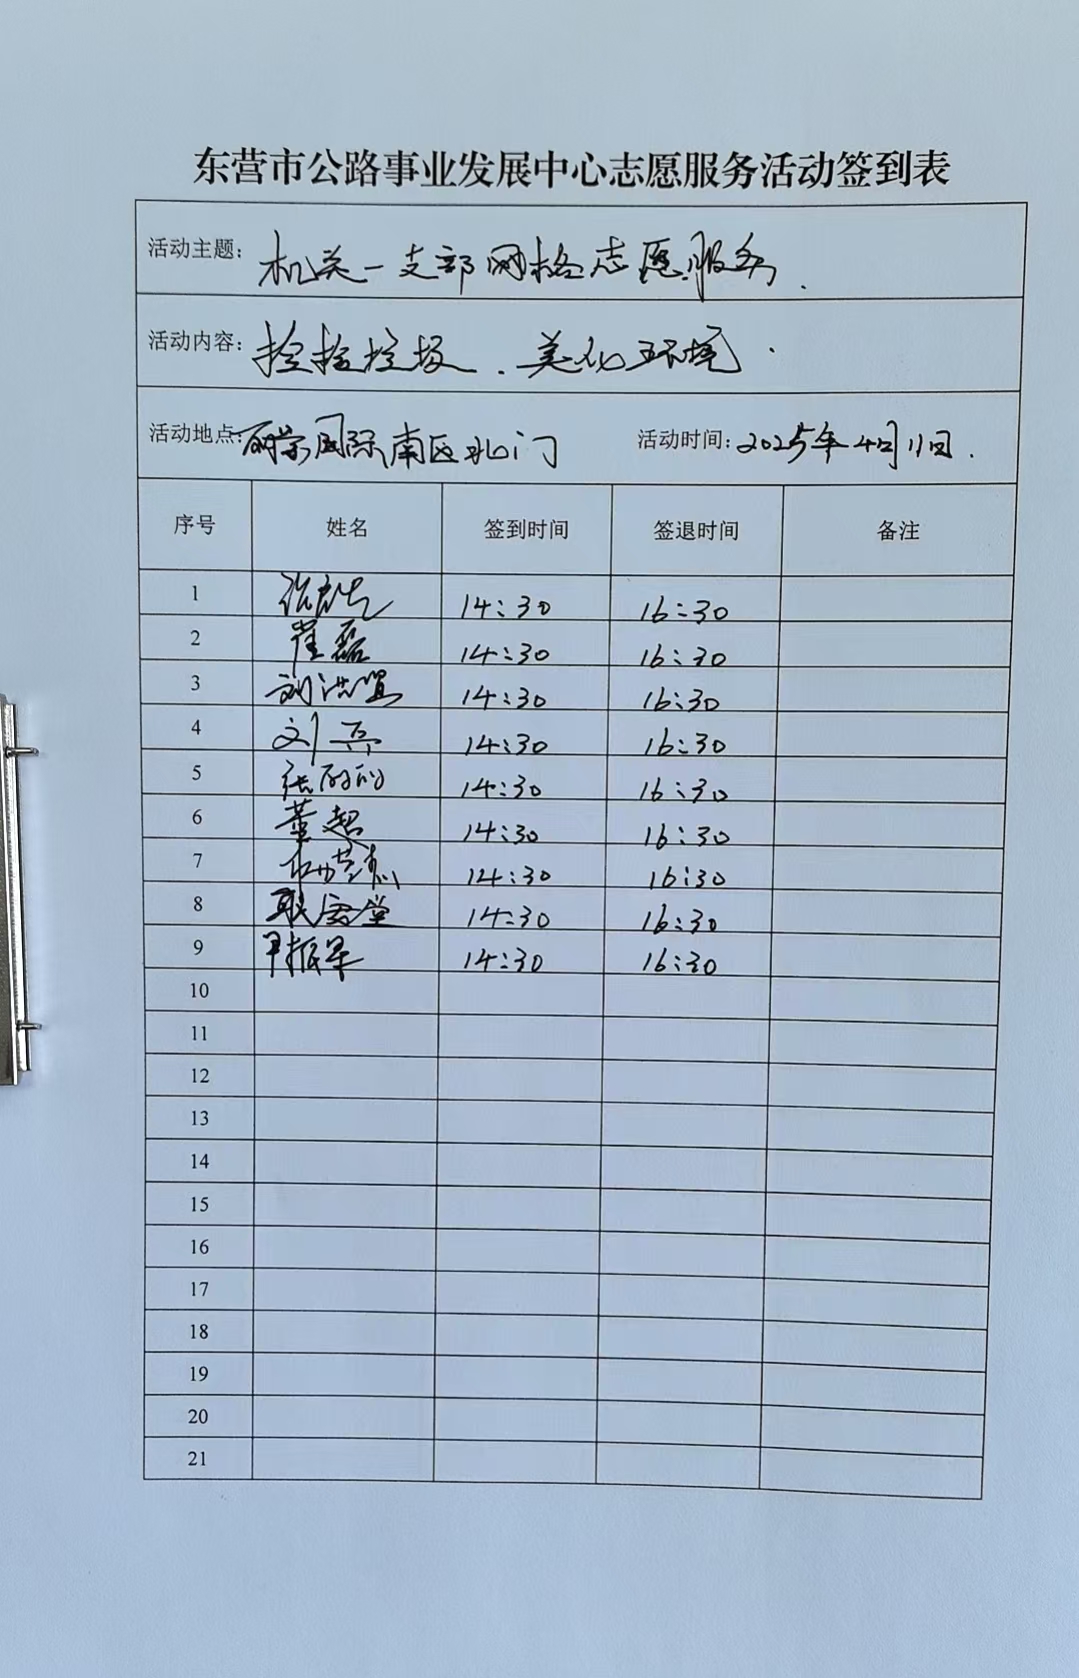 东营市公路事业发展中心志愿服务活动签到表
活动主题: 机关一支部网格志愿服务.
活动内容: 捡拾垃圾.美化环境.
活动地点: 国际南区北门 活动时间: 2025年4月11日.
序号 姓名 签到时间 签退时间 备注
1 14:30 16:30
2 崔磊 14:30 16:30
3 刘洪 14:30 16:30
4 刘 14:30 16:30
5 张 14:30 16:30
6 董超 14:30 16:30
7 14:30 16:30
8 耿 堂 14:30 16:30
9 振军 14:30 16:30
10
11
12
13
14
15
16
17
18
19
20
21